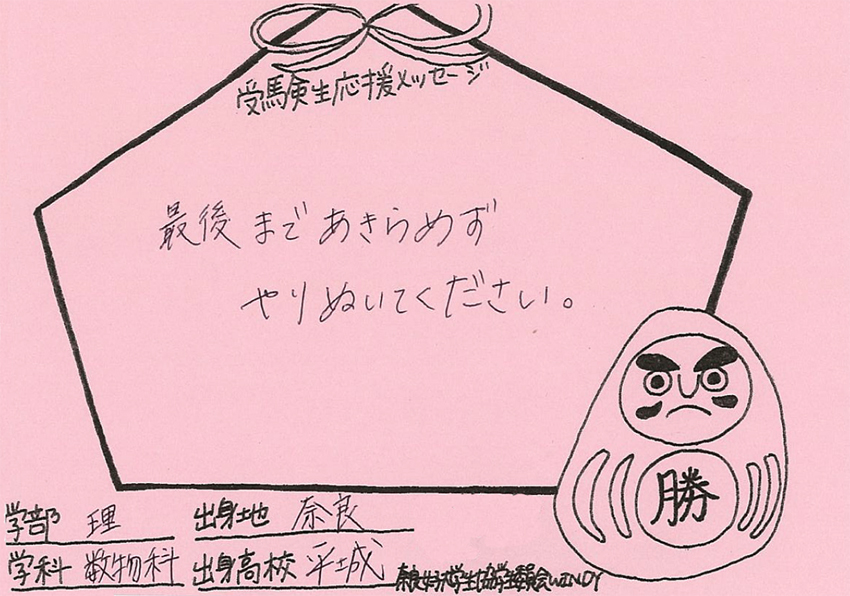 受験生応援メッセージ
最後まであきらめず
やりぬいてください。
勝
学部 理 出身地 奈良
学科 数物科 出身高校 平城
奈良女子大学生協学生委員会WINDY